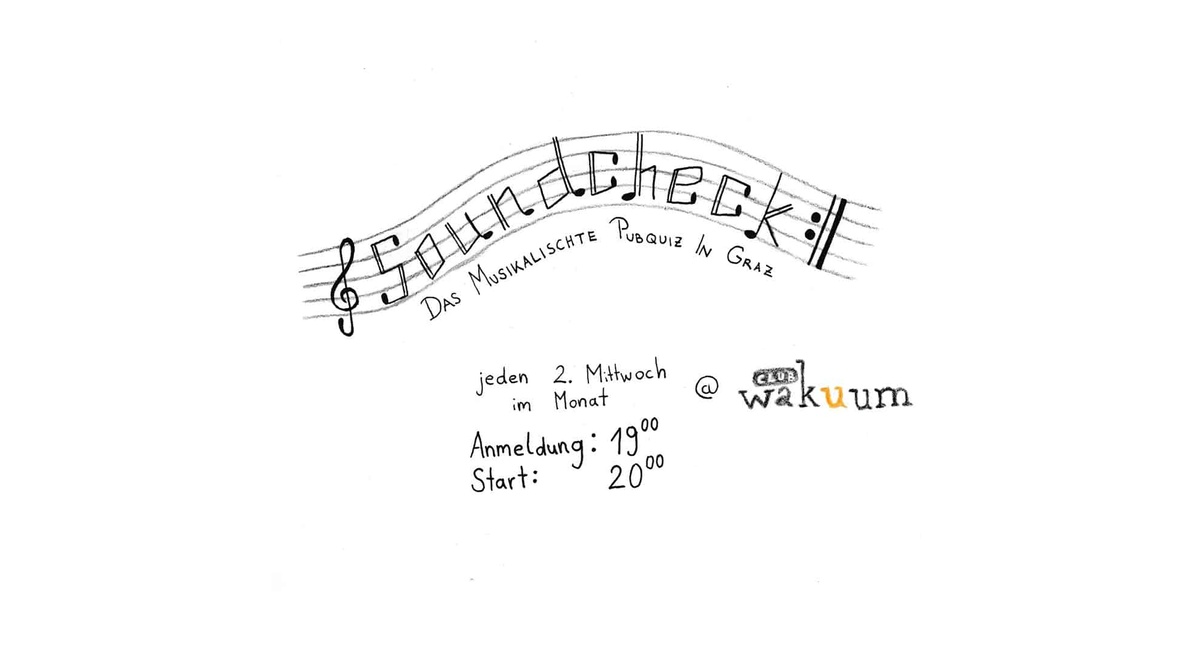 Soundcheck
Das Musikalischte Pubquiz In Graz
jeden 2. Mittwoch
im Monat
@ CLUB wakuum
Anmeldung: 19⁰⁰
Start: 20⁰⁰